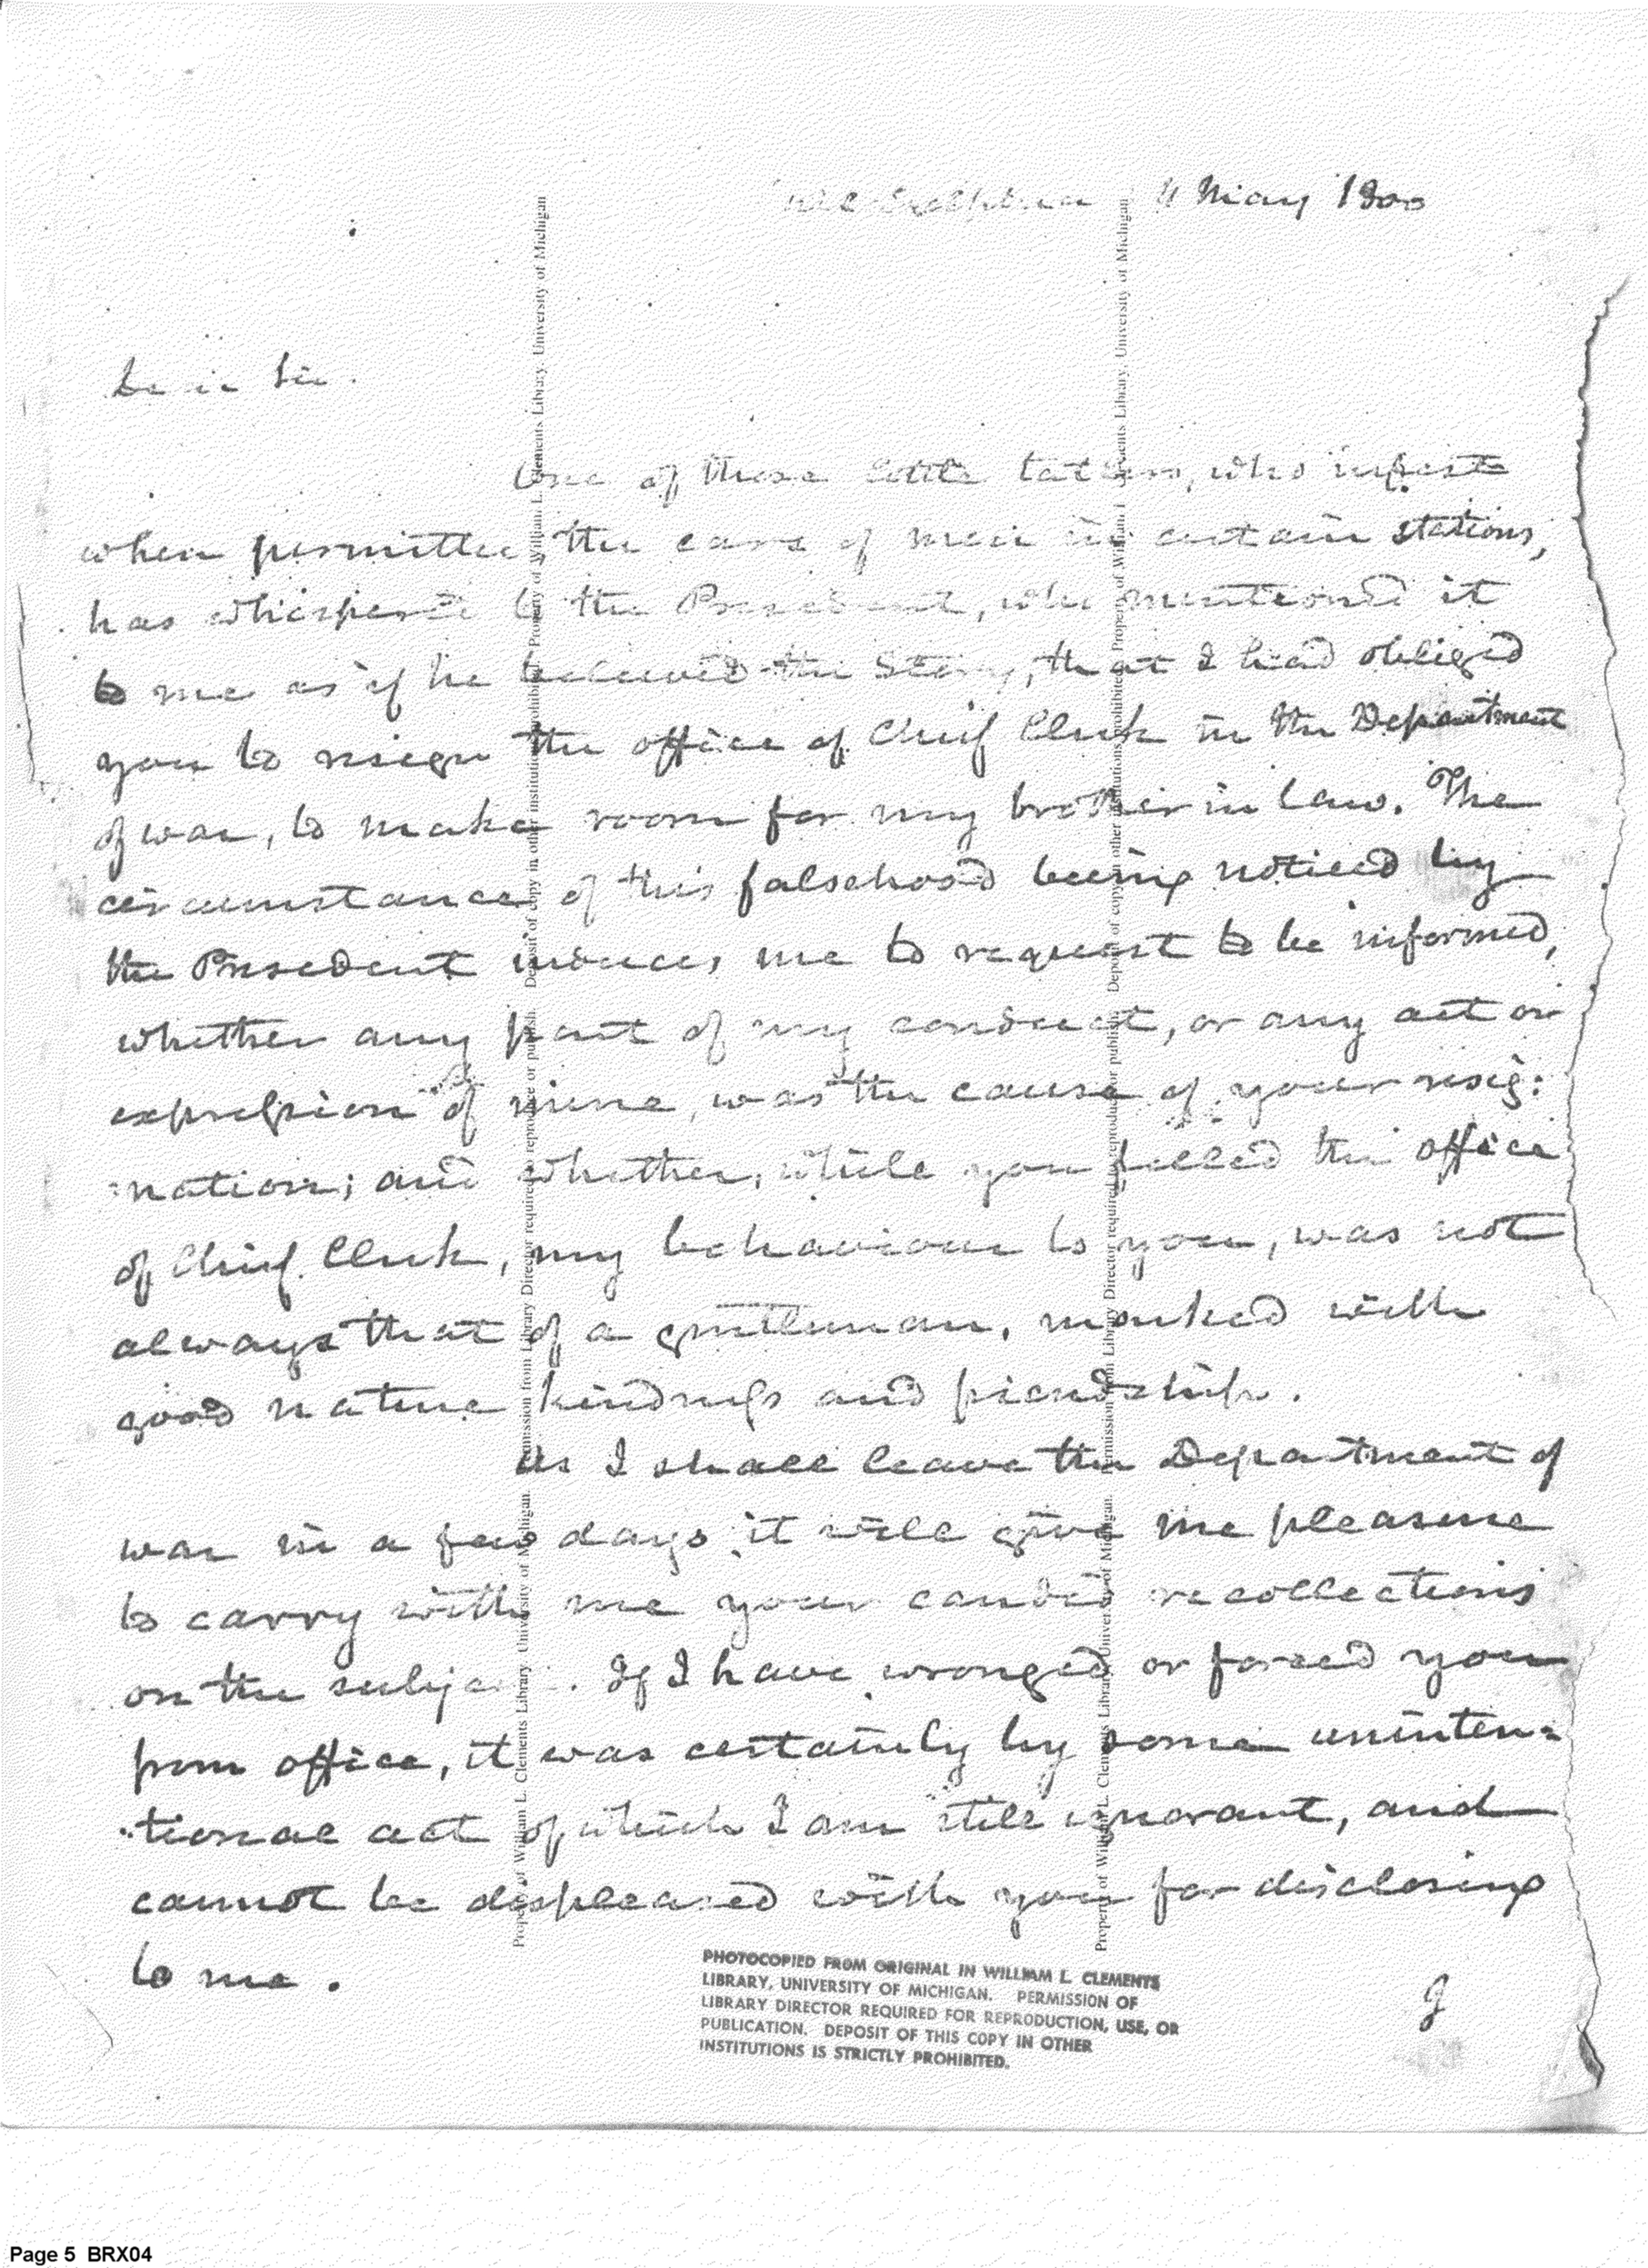 May 1800
Dear Sir.
One of those little tatlers, who infest
when permitted, the ears of men in certain stations,
has whispered to the President, who mentioned it
to me as if he believed the Story, that I had obliged
you to resign the office of Chief Clerk in the Department
of war, to make room for my brother in law. The
circumstance of this falsehood being noticed by
the President induces me to request to be informed,
whether any part of my conduct, or any act or
expression of mine, was the cause of your resig:
:nation; and whether, while you filled the office
of Chief Clerk, my behaviour to you, was not
always that of a gentleman, marked with
good nature kindness and friendship.
As I shall leave the Department of
war in a few days, it will give me pleasure
to carry with me your candid recollections
on the subject. If I have wronged or forced you
from office, it was certainly by some uninten=
:tional act of which I am still ignorant, and
cannot be displeased with you for disclosing
to me.
PHOTOCOPIED FROM ORIGINAL IN WILLIAM L. CLEMENTS
LIBRARY, UNIVERSITY OF MICHIGAN. PERMISSION OF
LIBRARY DIRECTOR REQUIRED FOR REPRODUCTION, USE, OR
PUBLICATION. DEPOSIT OF THIS COPY IN OTHER
INSTITUTIONS IS STRICTLY PROHIBITED.
I
Property of William L. Clements Library, University of Michigan. Permission from Library Director required to reproduce or publish. Deposit of copy in other institutions prohibited. Property of William L. Clements Library, University of Michigan
Property of William L. Clements Library, University of Michigan. Permission from Library Director required to reproduce or publish. Deposit of copy in other institutions prohibited. Property of William L. Clements Library, University of Michigan
Page 5 BRX04